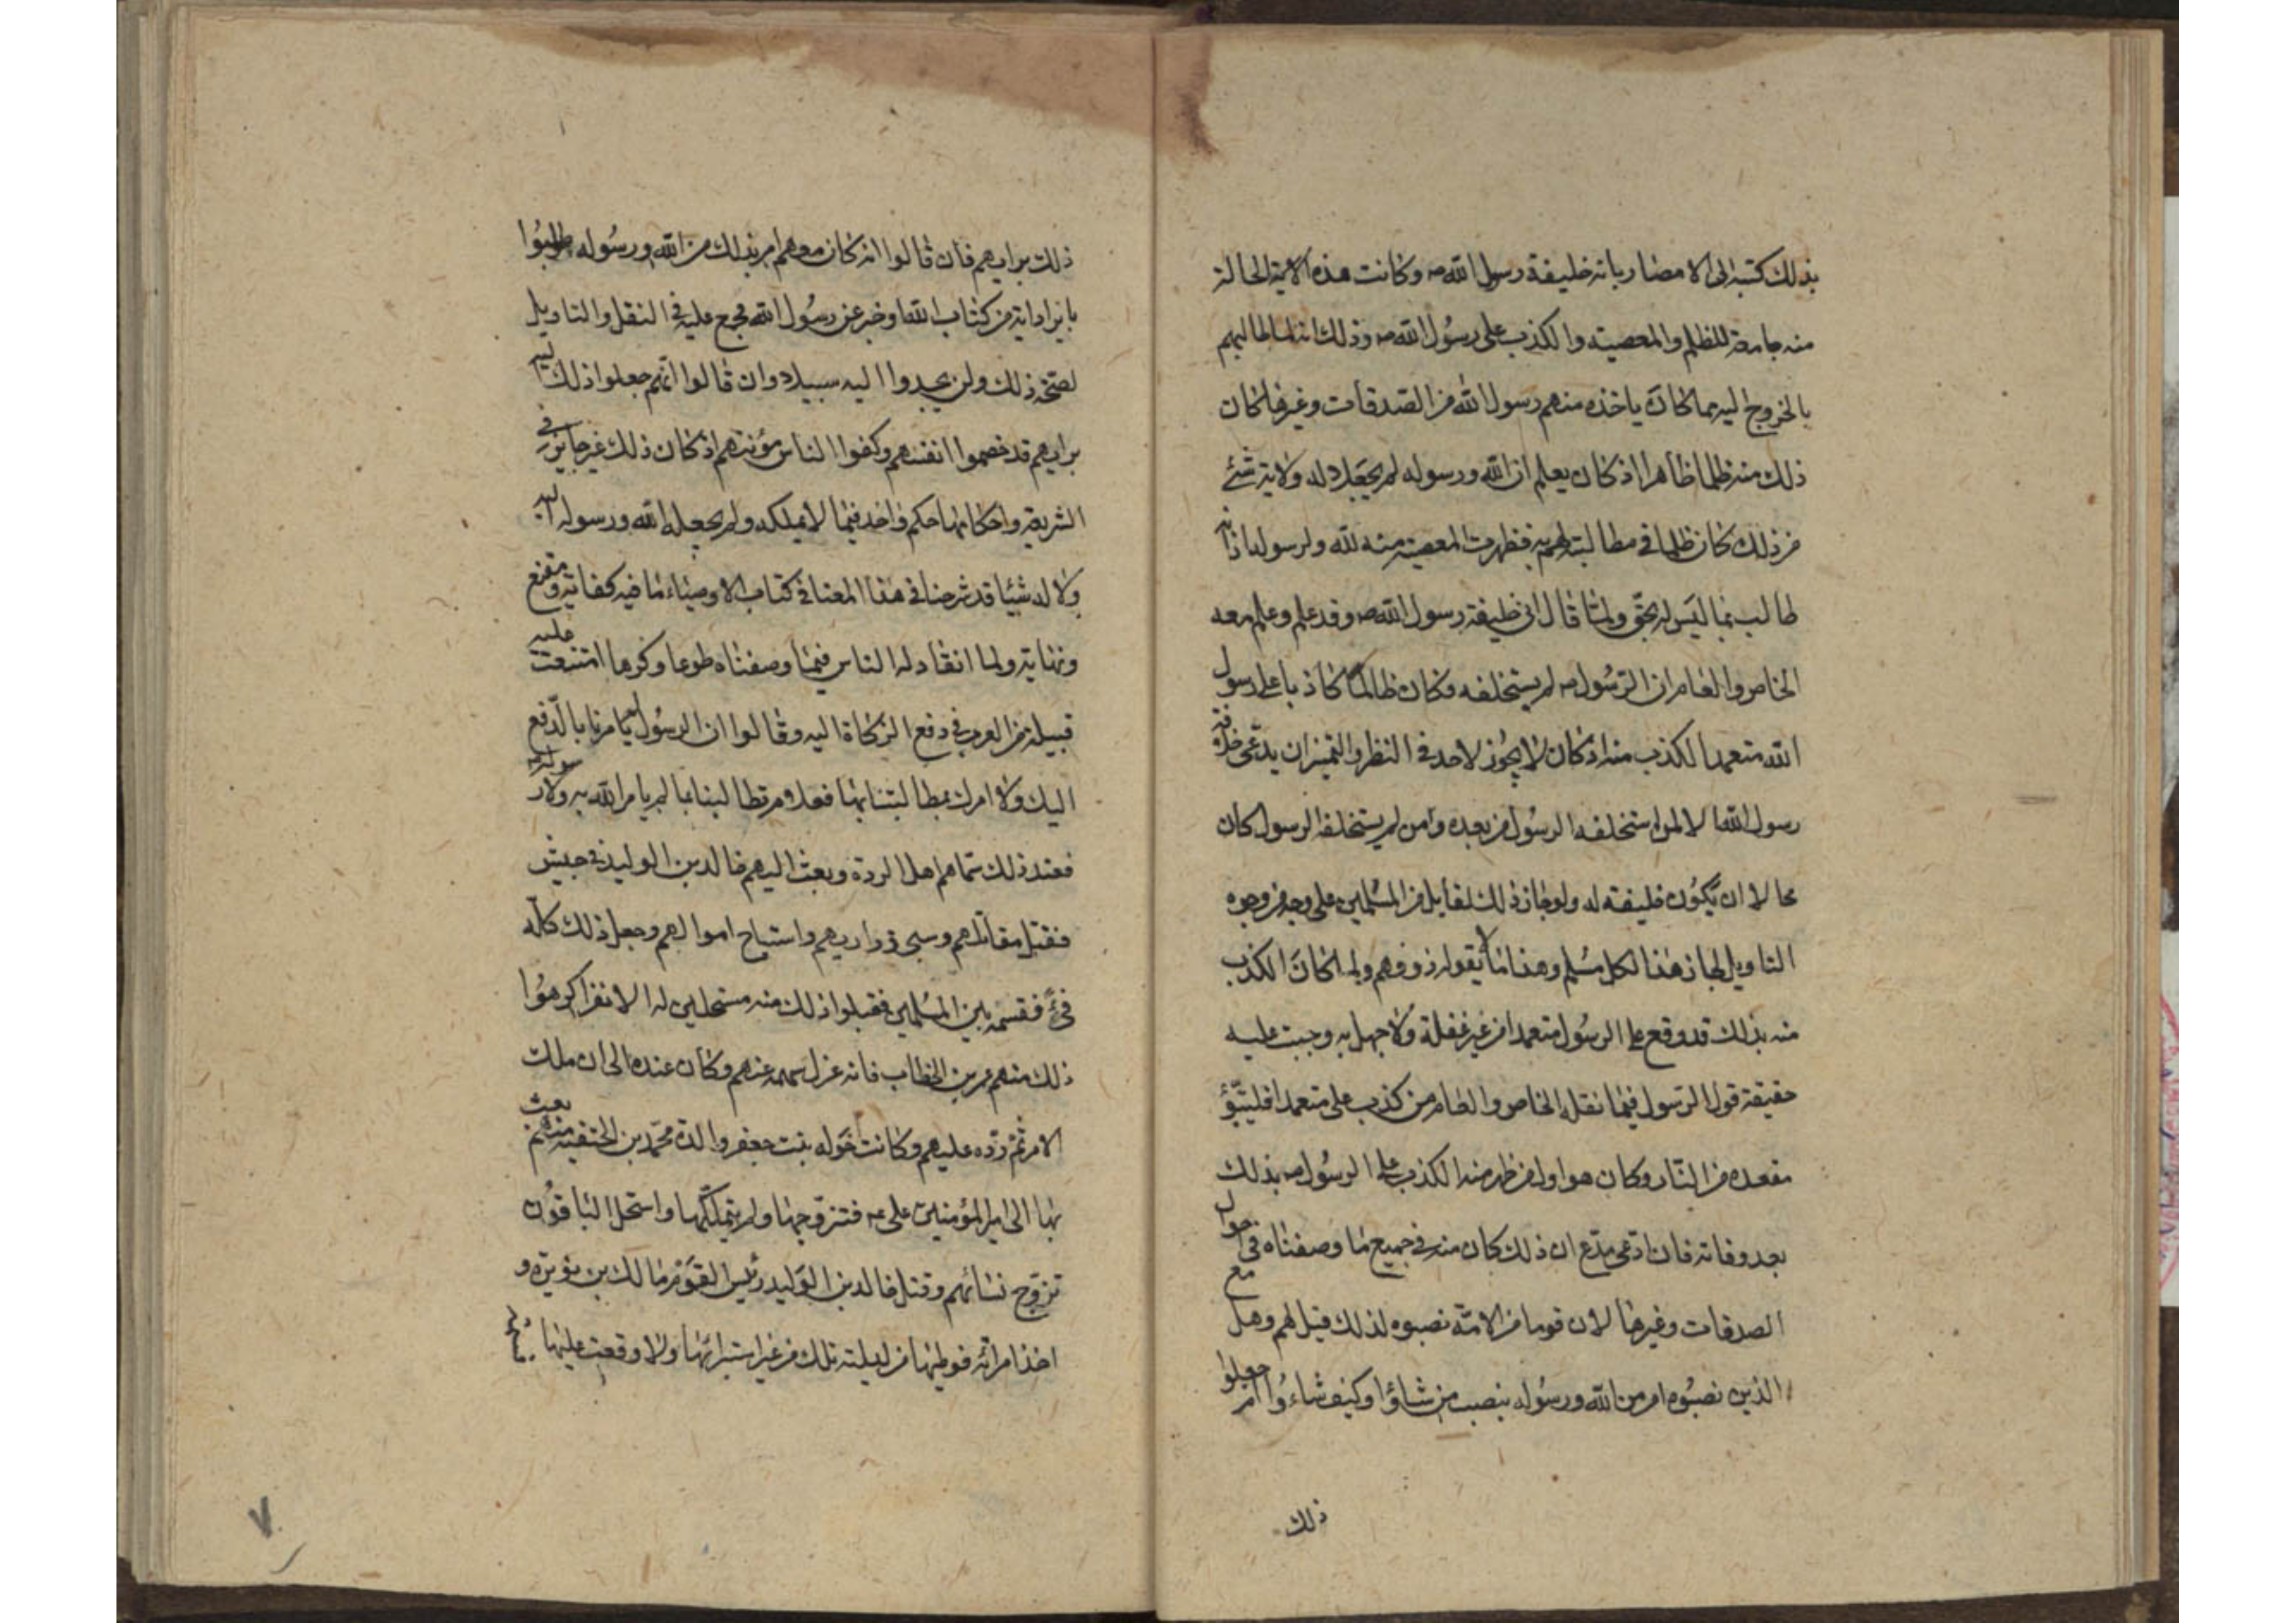 بذلك كتبه الى الامصار بانه خليفة رسول الله ص وكانت هذه الاية الحالة
منه جامعة للظلم والمعصية والكذب على رسول الله ص وذلك انه لما طالبهم
بالخروج اليه مما كان ياخذه منهم رسول الله من الصدقات وغيرها كان
ذلك منه ظلما ظاهرا اذ كان يعلم ان الله ورسوله لم يجعلا له ولاية شئ
من ذلك كان ظلما في مطالبته لهم به فظهرت المعصية منه لله ولرسوله اذا نه
طالب بما ليس له بحق ولما قال اني خليفة رسول الله ص وقد علم وعلم معه
الخاص والعام ان الرسول ص لم يستخلفه وكان ظالما كاذبا على رسول
الله متعمدا لكذب منه اذ كان لا يجوز لاحد في النظر والتميز ان يدعى خلافة
رسول الله الا لمن استخلفه الرسول من بعده وامن لم يستخلفه الرسول كان
محالا ان يكون خليفته له ولو جاز ذلك لقايل من المسلمين على وجه من وجوه
التاويل لجاز هذا لكل مسلم وهذا ما لا يقوله ذو وفهم ولما كان الكذب
منه بذلك قد وقع على الرسول متعمدا من غير غفلة ولا جهل به وجبت عليه
حقيقة قول الرسول فيما نقله الخاص والعام من كذب على متعمدا فليتبؤ
مقعده من النار وكان هو اول من ظهر منه الكذب على الرسول ص بذلك
بعد وفاته فان ادعى مدع ان ذلك كان منه في جميع ما وصفناه في احوال
الصدقات وغيرها لان قوما من الامة نصبوه لذلك قيل لهم وهل مع
الذين نصبوه امر من الله ورسوله بنصب من شاؤا وكيف شاءوا ام جعلوا
ذلك
ذلك برايهم فان قالوا انه كان معهم امر بذلك من الله ورسوله طولبوا
بايراد اية من كتاب الله او خبر عن رسول الله مجمع عليه في النقل والتاويل
لصحة ذلك ولن يجدوا اليه سبيلا وان قالوا انهم جعلوا ذلك اليه
برايهم قد خصموا انفسهم وكفوا الناس مؤنتهم اذ كان ذلك غير جايز في
الشريعة واحكامها حكم واحد فيما لا يملكه ولم يجعله الله ورسوله اليه
ولا له شيئا قد شرحنا في هذا المعنا في كتاب الاوصياء ما فيه كفاية ومقنع
ونهاية ولما انقاد له الناس فيما وصفناه طوعا وكرها امتنعت عليه
قبيلة من العرب في دفع الزكاة اليه وقالوا ان الرسول لم يامرنا بالدفع
اليك ولا امرك بمطالبتنا بها فعلام تطالبنا بما لم يامر الله به ولا رسوله
فعند ذلك سماهم اهل الردة وبعث اليهم خالد بن الوليد في جيش
فقتل مقاتلهم وسبى ذراريهم واستباح اموالهم وجعل ذلك كله
فئ فقسمه بين المسلمين فقبلوا ذلك منه مستحلين له الا نفرا كرهوا
ذلك منهم عمر بن الخطاب فانه عزل سهمه عنهم وكان عنده الى ان ملك
الامر ثم رده عليهم وكانت خوله بنت جعفر والدة محمد بن الحنفية منهم بعث
بها الى امير المؤمنين على ع فتزوجها ولم يتملكها واستحل الباقون
تزوج نسائهم وقتل خالد بن الوليد رئيس القوم مالك بن نويرة و
اخذ امراته فوطئها من ليلته تلك من غير استبرائها ولا وقعت عليها
٧